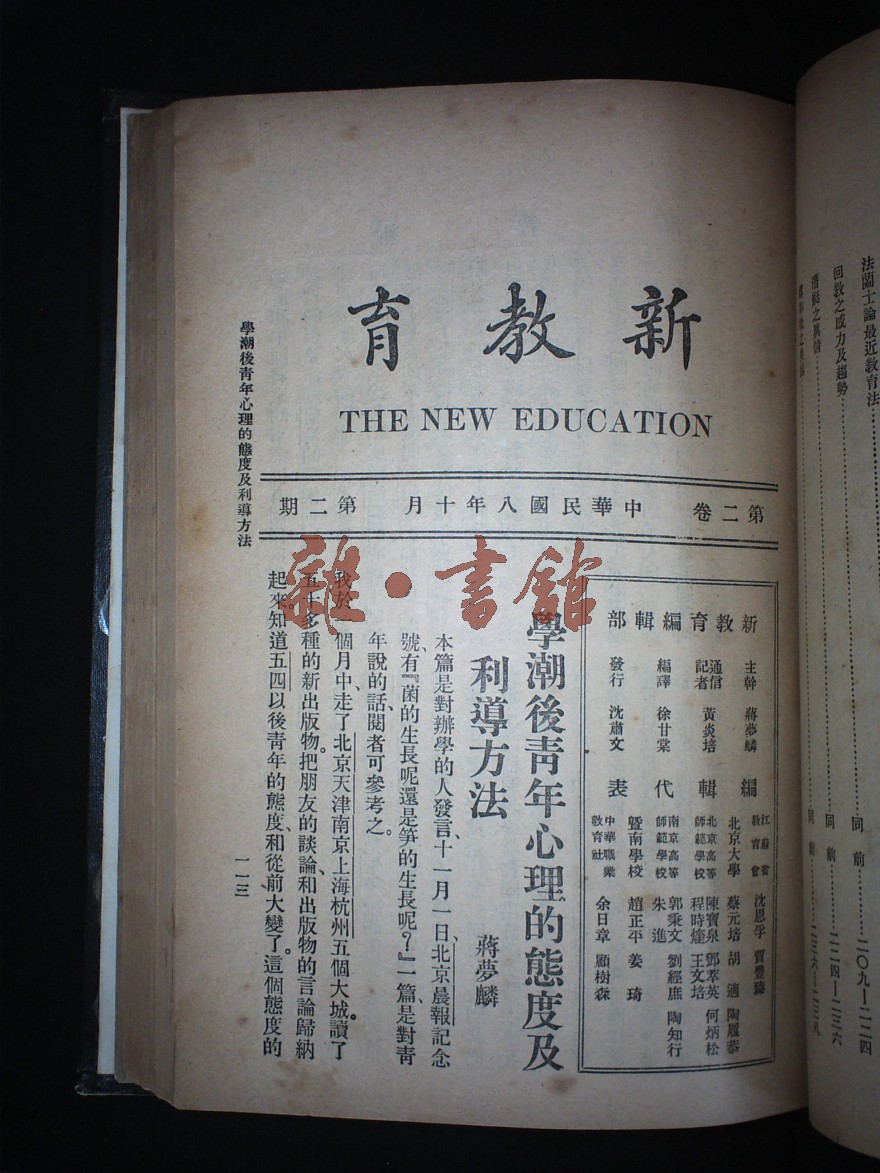 新教育
THE NEW EDUCATION
第二卷 中華民國八年十月 第二期
新教育編輯部
主幹 蔣夢麟
通信記者 黃炎培
編譯 徐甘棠
發行 沈肅文
編輯代表
江蘇省教育會 沈恩孚 賈豐臻
北京大學 蔡元培 胡適 陶履恭
北京高等師範學校 陳寶泉 鄧萃英 何炳松
程時煃 王文培
南京高等師範學校 郭秉文 劉經庶 陶知行
朱進
暨南學校 趙正平 姜琦
中華職業教育社 余日章 顧樹森
學潮後青年心理的態度及
利導方法
蔣夢麟
本篇是對辦學的人發言、十一月一日、北京晨報記念
號、有『菌的生長呢還是笋的生長呢?』一篇是對青
年說的話、閱者可參考之。
我於一個月中、走了北京天津南京上海杭州五個大城。讀了
五十多種的新出版物。把朋友的談論、和出版物的言論歸納
起來。知道五四以後青年的態度、和從前大變了。這個態度的
學潮後青年心理的態度及利導方法
一一三
雜·書館
法蘭士論最近教育法 同前 二〇九—二二四
回教之威力及趨勢 同前 二二四—二三六
潛艇之真情 同前 二三六—二三八